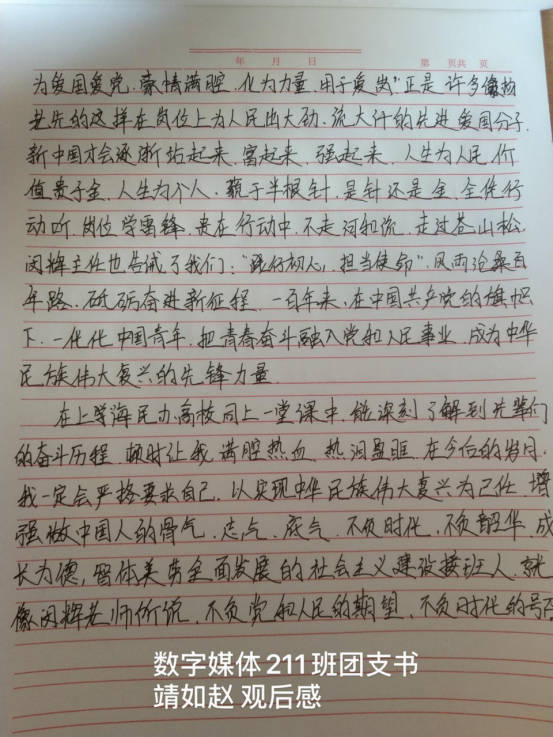 年 月 日 第 页共 页
为爱国爱党,豪情满腔,化为力量,用于爱岗"正是许多像杨
老先的这样在岗位上为人民出大劲、流大汗的先进爱国分子,
新中国才会逐渐站起来、富起来、强起来、人生为人民,价
值贵于金,人生为个人,藐于半根针,是针还是金,全凭行
动听,岗位学雷锋,贵在行动中,不走河和流,走过苍山松,
闵辉主任也告诫了我们:"践行初心,担当使命",风雨沧桑百
年路,砥砺奋进新征程,一百年来,在中国共产党的旗帜
下,一代代中国青年,把青春奋斗融入党和人民事业,成为中华
民族伟大复兴的先锋力量.
在上学海民办高校同上一堂课中,能深刻了解到先辈们
的奋斗历程,顿时让我满腔热血,热泪盈眶,在今后的岁月,
我一定会严格要求自己,以实现中华民族伟大复兴为己任,增
强做中国人的骨气、志气、底气,不负时代,不负韶华,成
长为德,智体美劳全面发展的社会主义建设接班人,就
像闵辉老师所说,不负党和人民的期望,不负时代的号召
数字媒体211班团支书
靖如赵 观后感